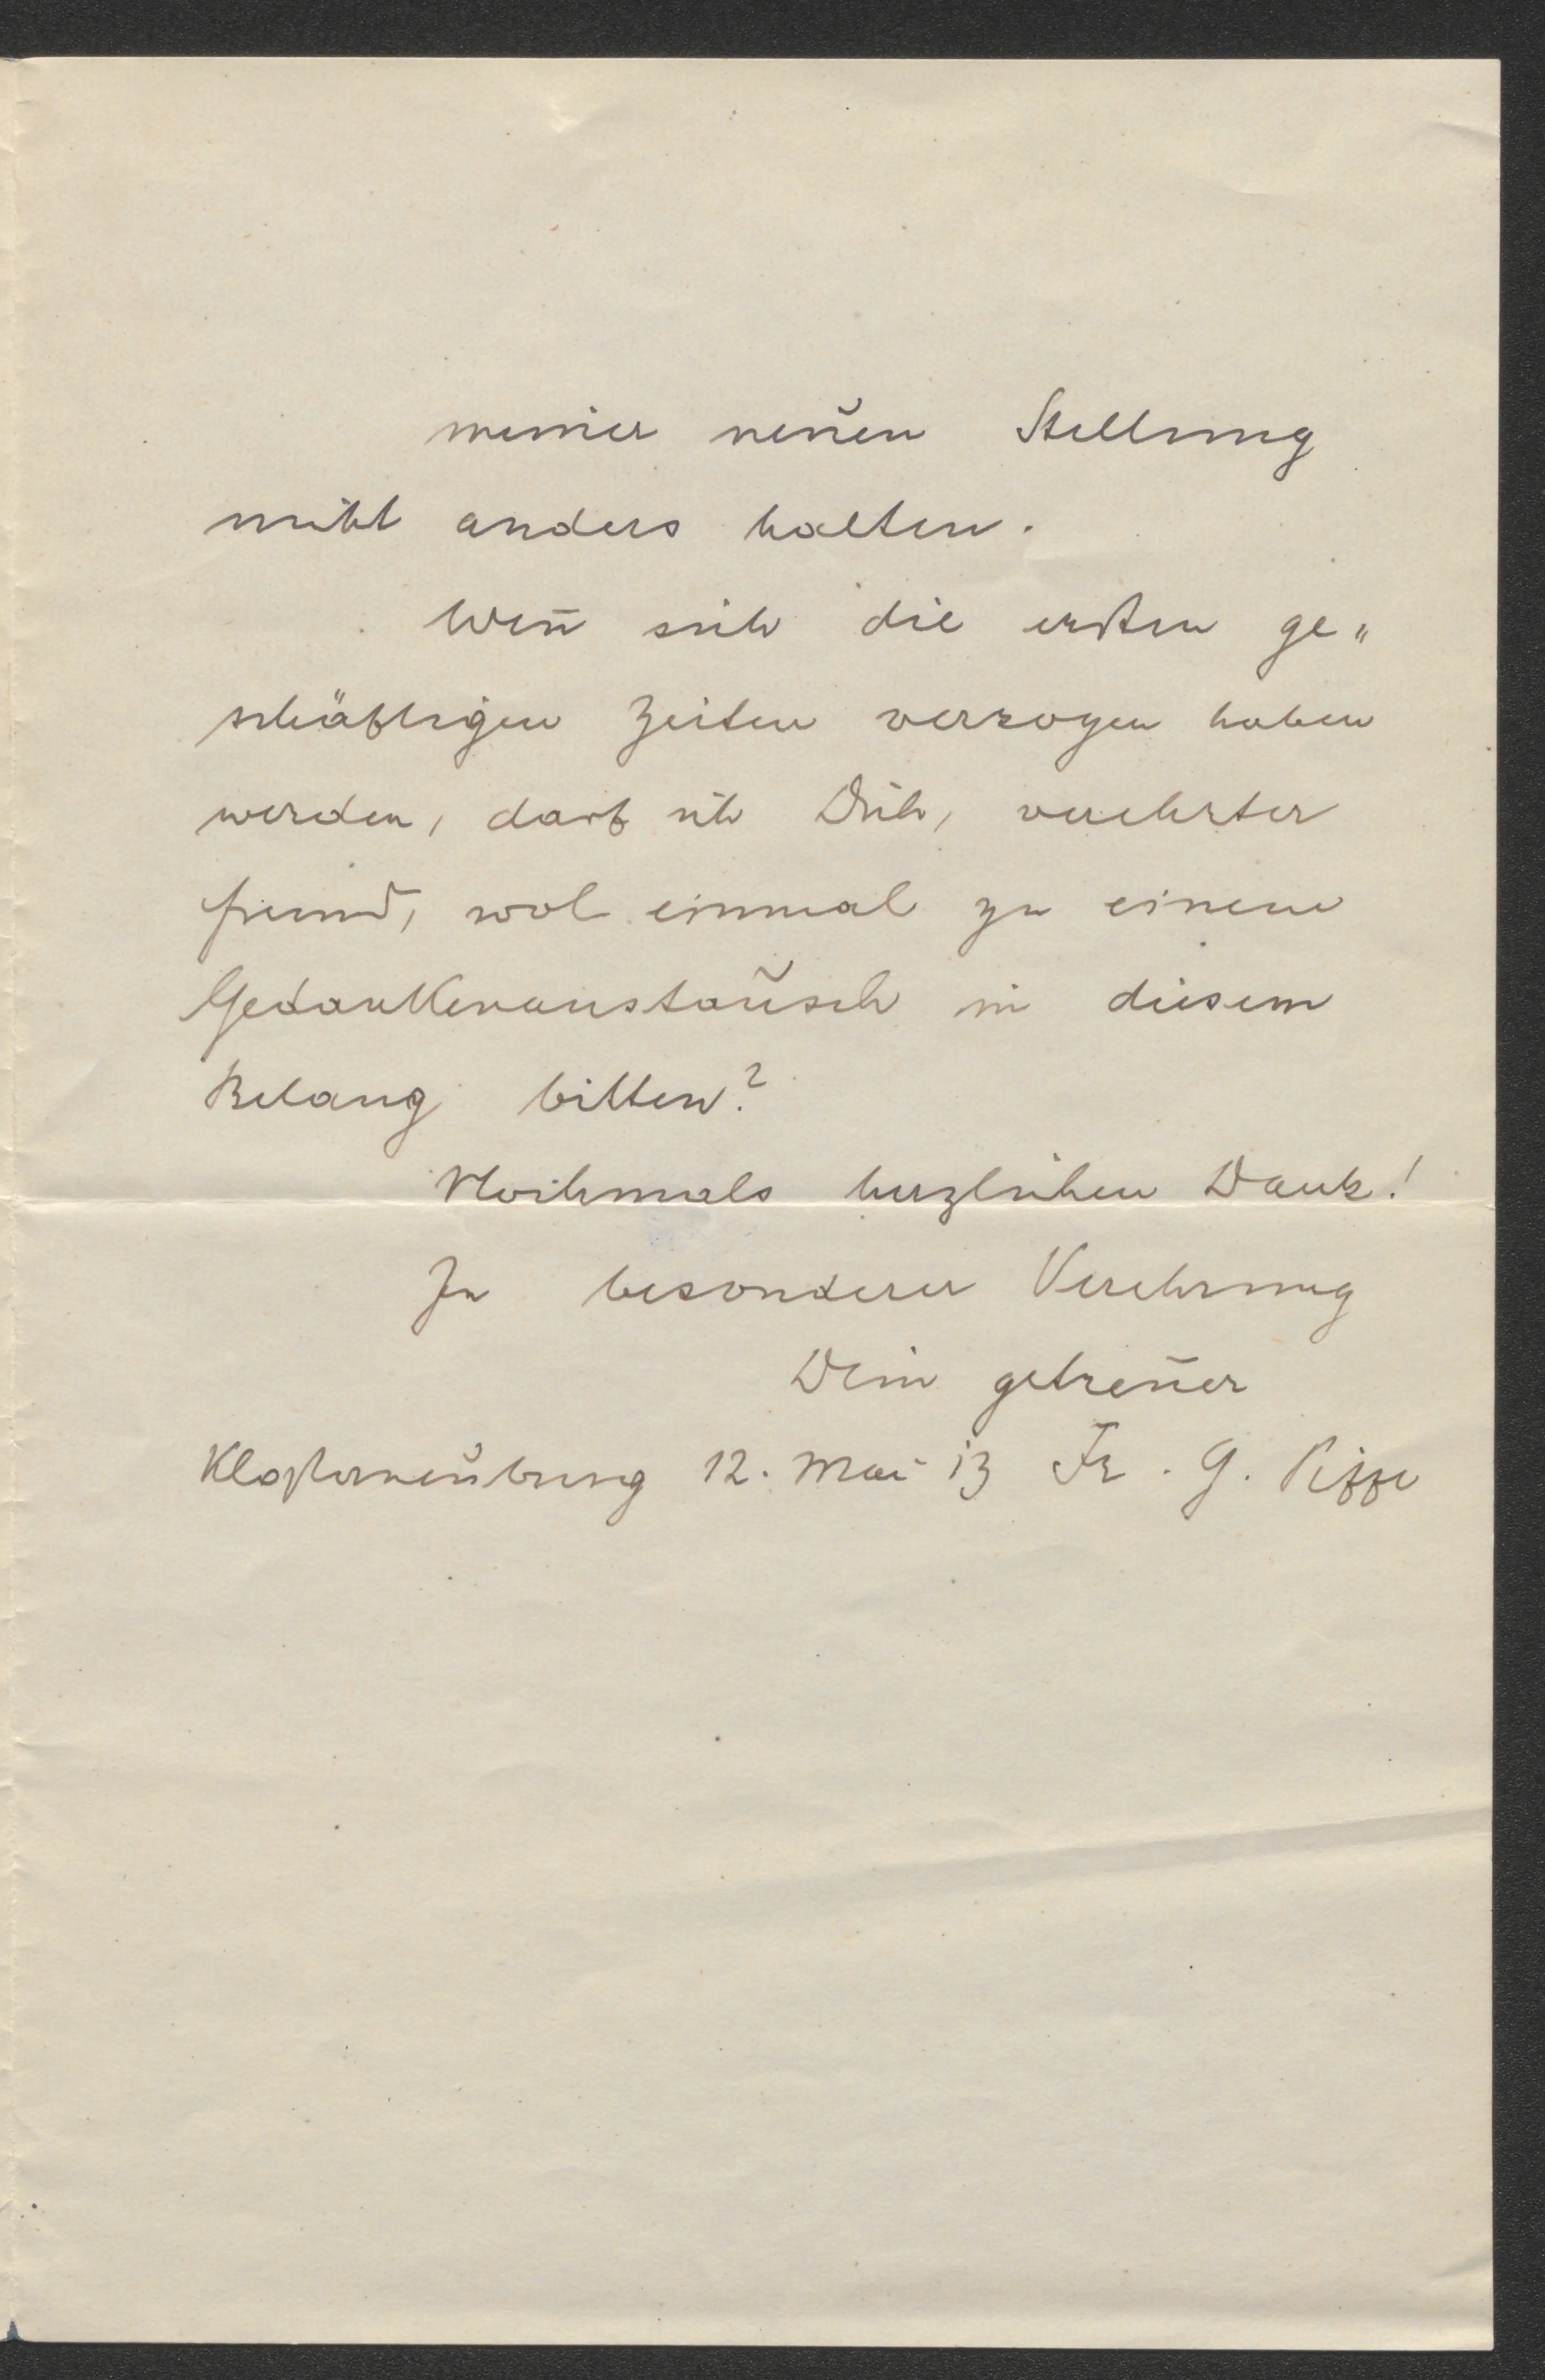 meiner neuen Stellung
nicht anders halten.
Weñ sich die ersten ge„
schäftigen Zeiten verzogen haben
werden, darf ich Dich, verehrter
Freund, wol einmal zu einem
Gedankenaustausch in diesem
Belang bitten?
Nochmals herzlichen Dank!
In besonderer Verehrung
Dein getreuer
Klosterneuburg 12. Mai 13 Fr. G.